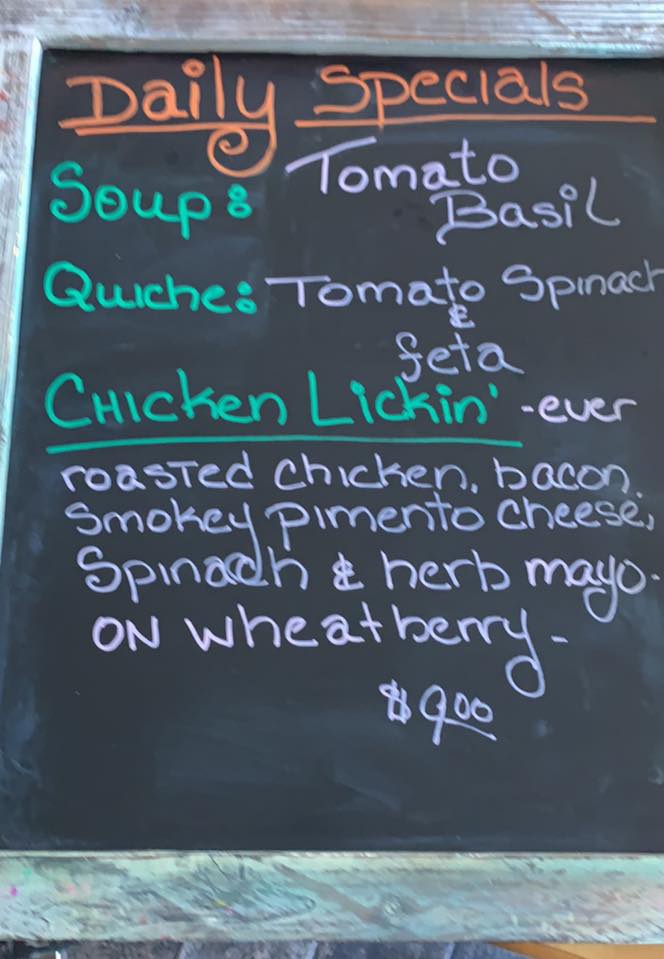 Daily Specials
Soup: Tomato
Basil
Quiche: Tomato Spinach
&
feta
Chicken Lickin' -ever
roasted chicken, bacon,
Smokey pimento cheese,
Spinach & herb mayo.
ON wheatberry-
$9.00